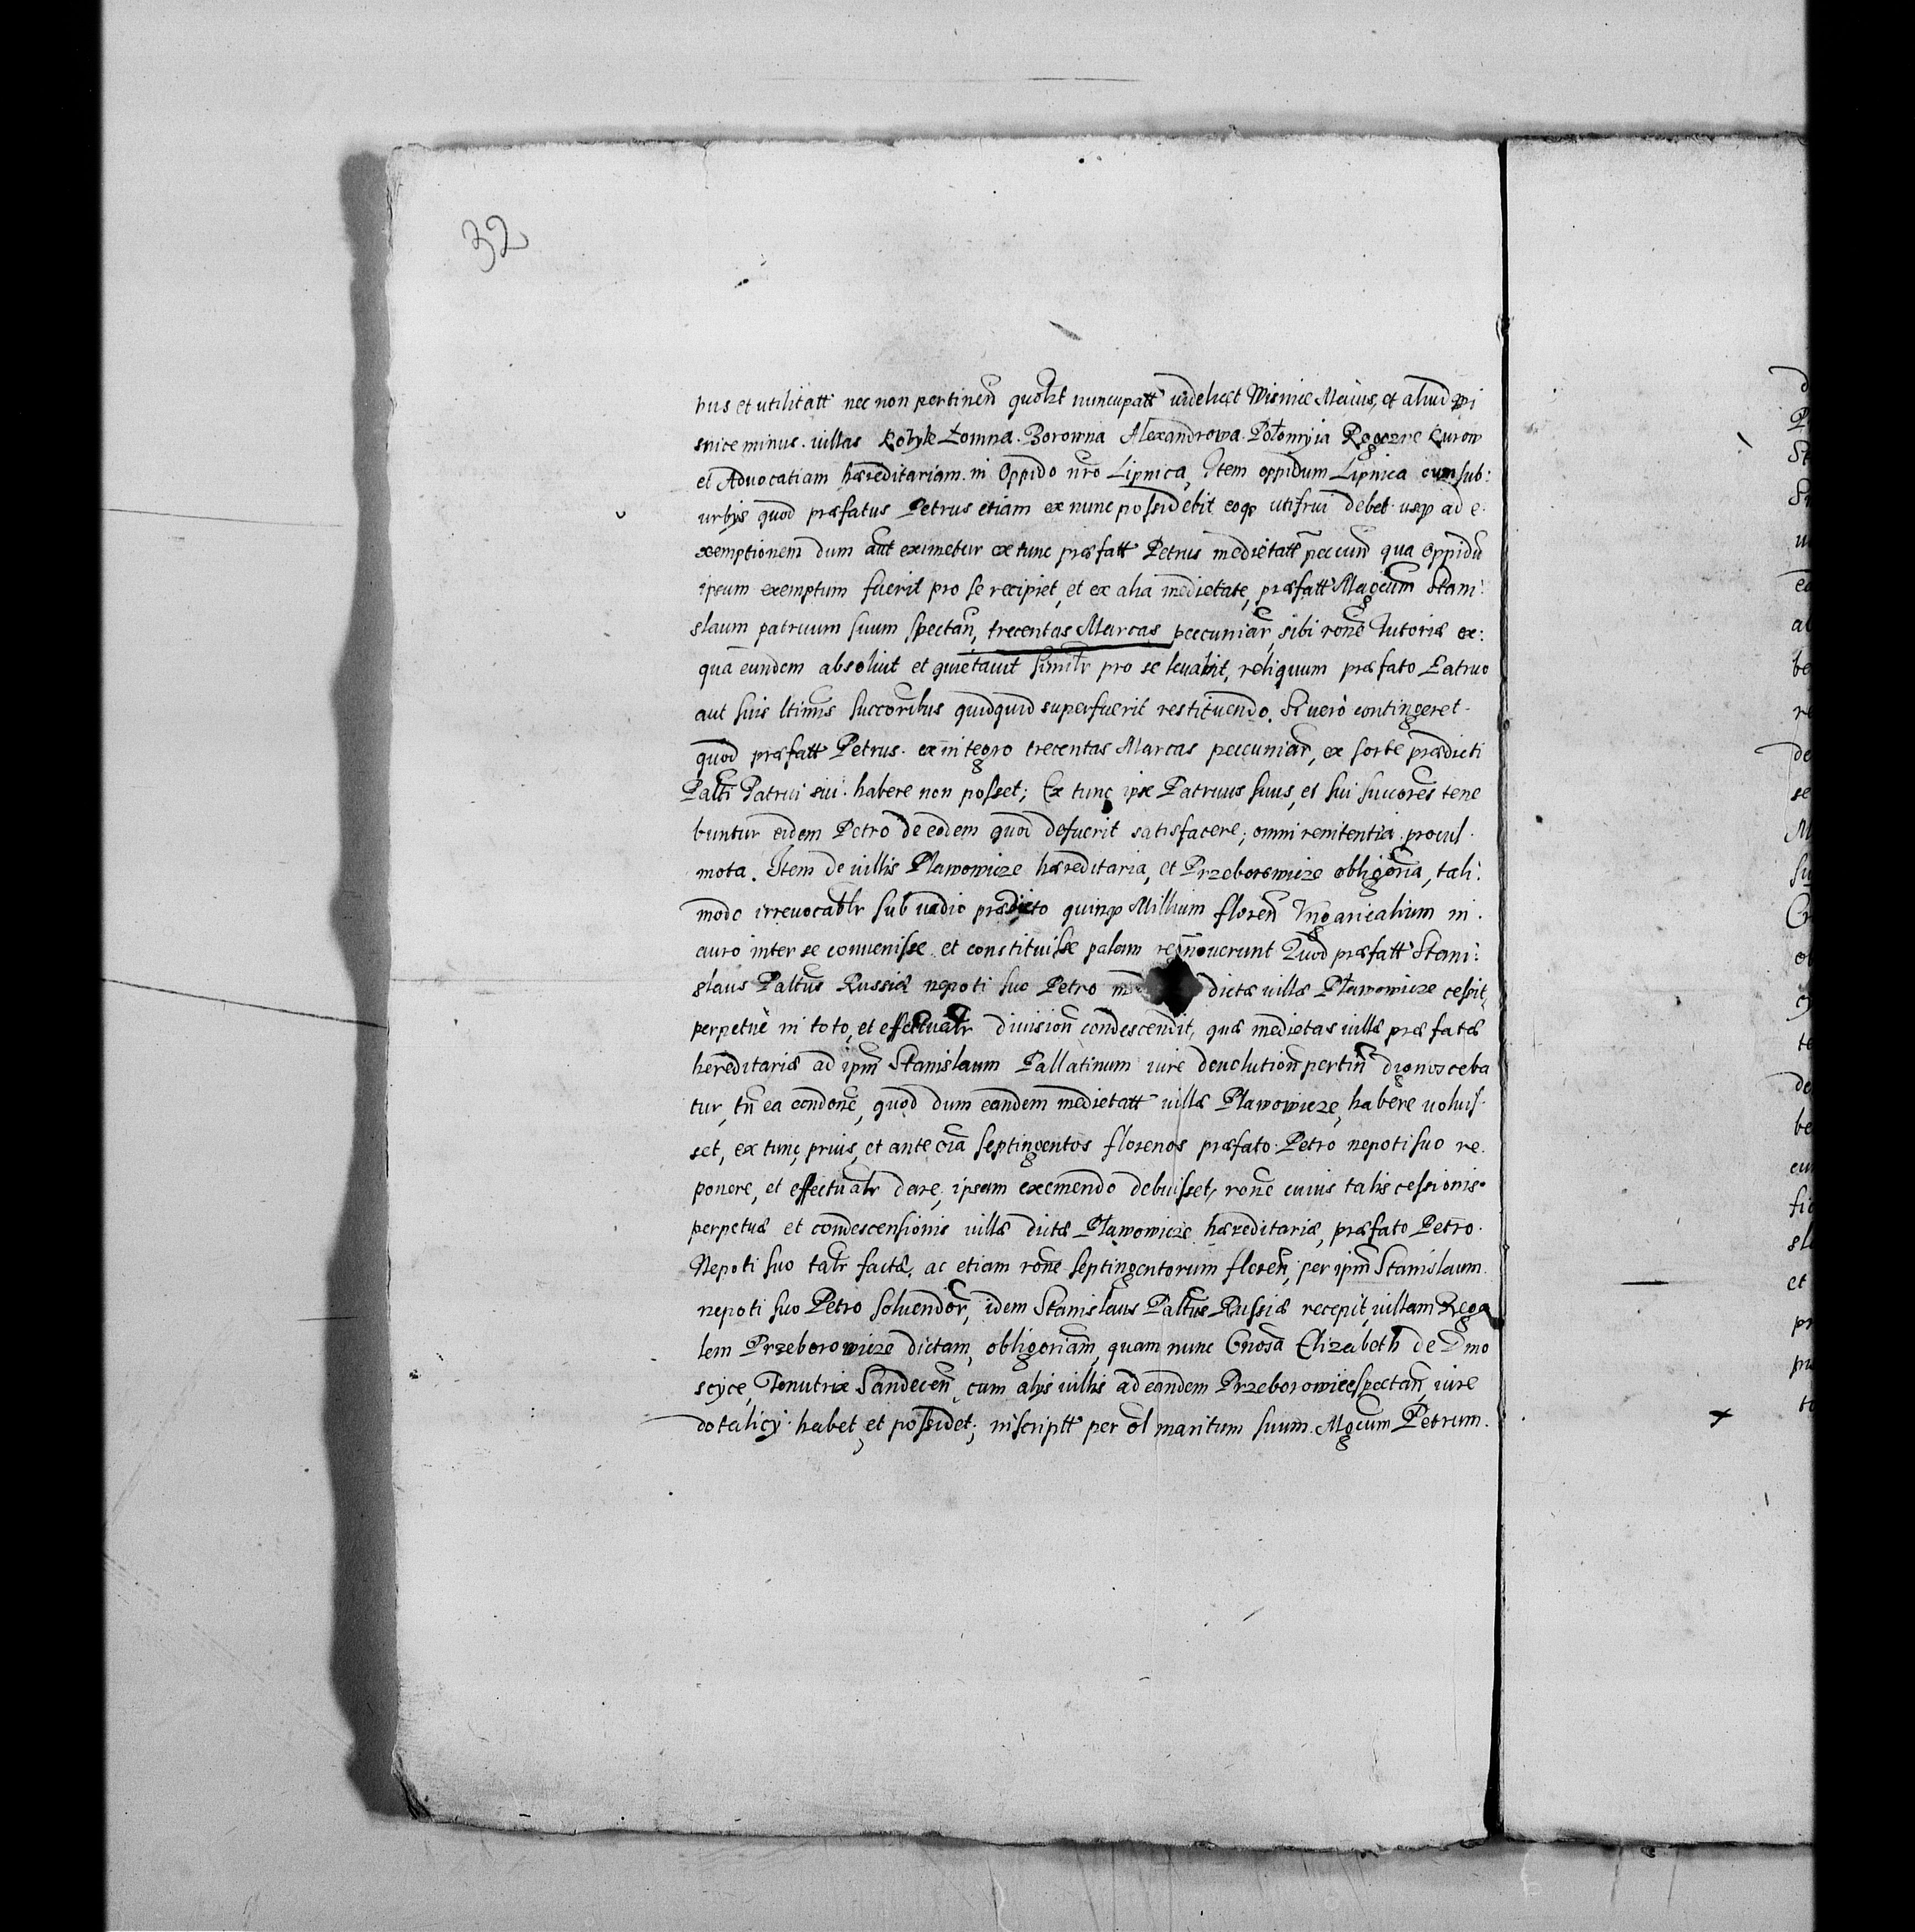 32
bus et utilitatt nec non pertinen quolt nuncupatt videlicet Wisnice Maius, et aliud Wi
snice minus. villas Kobyle Łomna. Borowna Alexandrowa. Połomyia Rogozne Kurow
et Advocatiam hæreditariam in Oppido nro Lipnica, Item oppidum Lipnica cum sub:
urbys quod præfatus Petrus etiam ex nunc possidebit eoqȝ utifrui debet usqȝ ad e.
xemptionem dum aut eximetur ex tunc præfatt Petrus medietatt peccun qua Oppidu
ipsum exemptum fuerit pro se recipiet, et ex alia medietate, præfatt Magcum Stani:
slaum patruum suum spectan, trecentas Marcas peccuniar, sibi rone Tutoriæ ex:
qua eundem absoluit et quietauit similr pro se leuabit, reliquum præfato Patruo
aut suis ltimis succoribus quidquid superfuerit restituendo. Si uero contingeret.
quod præfatt Petrus. ex integro trecentas Marcas peccuniar, ex sorte prædicti
Palti Patrui sui. habere non posset; Ex tunc ipse Patruus suus, et sui succores tene
buntur eidem Petro de eodem quod defuerit satisfacere; omni renitentia procul.
mota. Item de villis Plawowicze hæreditaria, et Przeborowicze obligoria, tali:
modo irreuocablr sub uadio prædicto quinqȝ Millium floren Vngaricalium in.
auro inter se conuenisse et constituisse palam recnouerunt Quod præfatt Stani:
slaus Paltnus Russiæ nepoti suo Petro me dictæ villæ Pławowicze cessit,
perpetuè in toto, et effectualr division condescendit, quæ medietas villæ præfatæ
hereditariæ ad ipm Stanislaum Pallatinum iure deuolution pertin dignosceba
tur, tn ea condone, quod dum eandem medietatt villæ Plawowicze, habere uoluis.
set, ex tunc, prius, et ante oia septingentos florenos præfato Petro nepoti suo re.
ponere, et effectualr dare, ipsam exemendo debuisset, rone cuius talis cessionis.
perpetuæ et condescensionis villæ dictæ Pławowicze hæreditariæ, præfato Petro.
Nepoti suo talr factæ, ac etiam rone septingentorum floren, per ipm Stanislaum.
nepoti suo Petro soluendor, idem Stanislaus Paltnus Russiæ recepit, villam Rega
lem Przeborowicze dictam, obligoriam, quam nunc Gnosa Elizabeth de Dmo
scyce, Tenutrix Sandecen, cum alys villis ad eandem Przeborowice spectan, iure
dotalicy habet et possidet, inscriptt per ol maritum suum Mgcum Petrum.